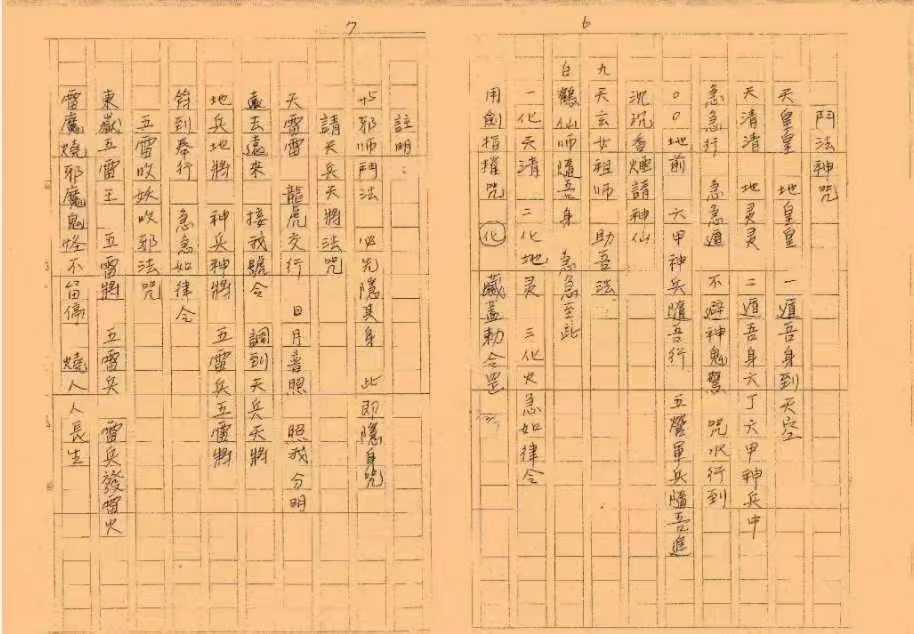 6
鬥法神咒
天皇皇 地皇皇 一遁吾身到天空
天清清 地灵灵 二遁吾身六丁六甲神兵中
急急行 急急遁 不避神鬼驚 咒水行到
〇〇地前 六甲神兵隨吾行 五營軍兵隨吾進
沉沉香煙請神仙
九天玄女祖师 助吾法
白鶴仙师隨吾身 急急至此
一化天清 二化地灵 三化火急如律令
用劍指摧咒 化 蓋勅令罡
7
註明：
邪师鬥法 必先隱其身 此即隱身咒
請天兵天將法咒
天雷雷 龍虎交行 日月喜照 照我分明
遠去遠來 接我號令 調到天兵天將
地兵地將 神兵神將 五雷兵五雷將
符到奉行 急急如律令
五雷收妖收邪法咒
東嶽五雷王 五雷將 五雷兵 雷兵發雷火
雷魔燒邪魔鬼怪不留停 燒人人長生